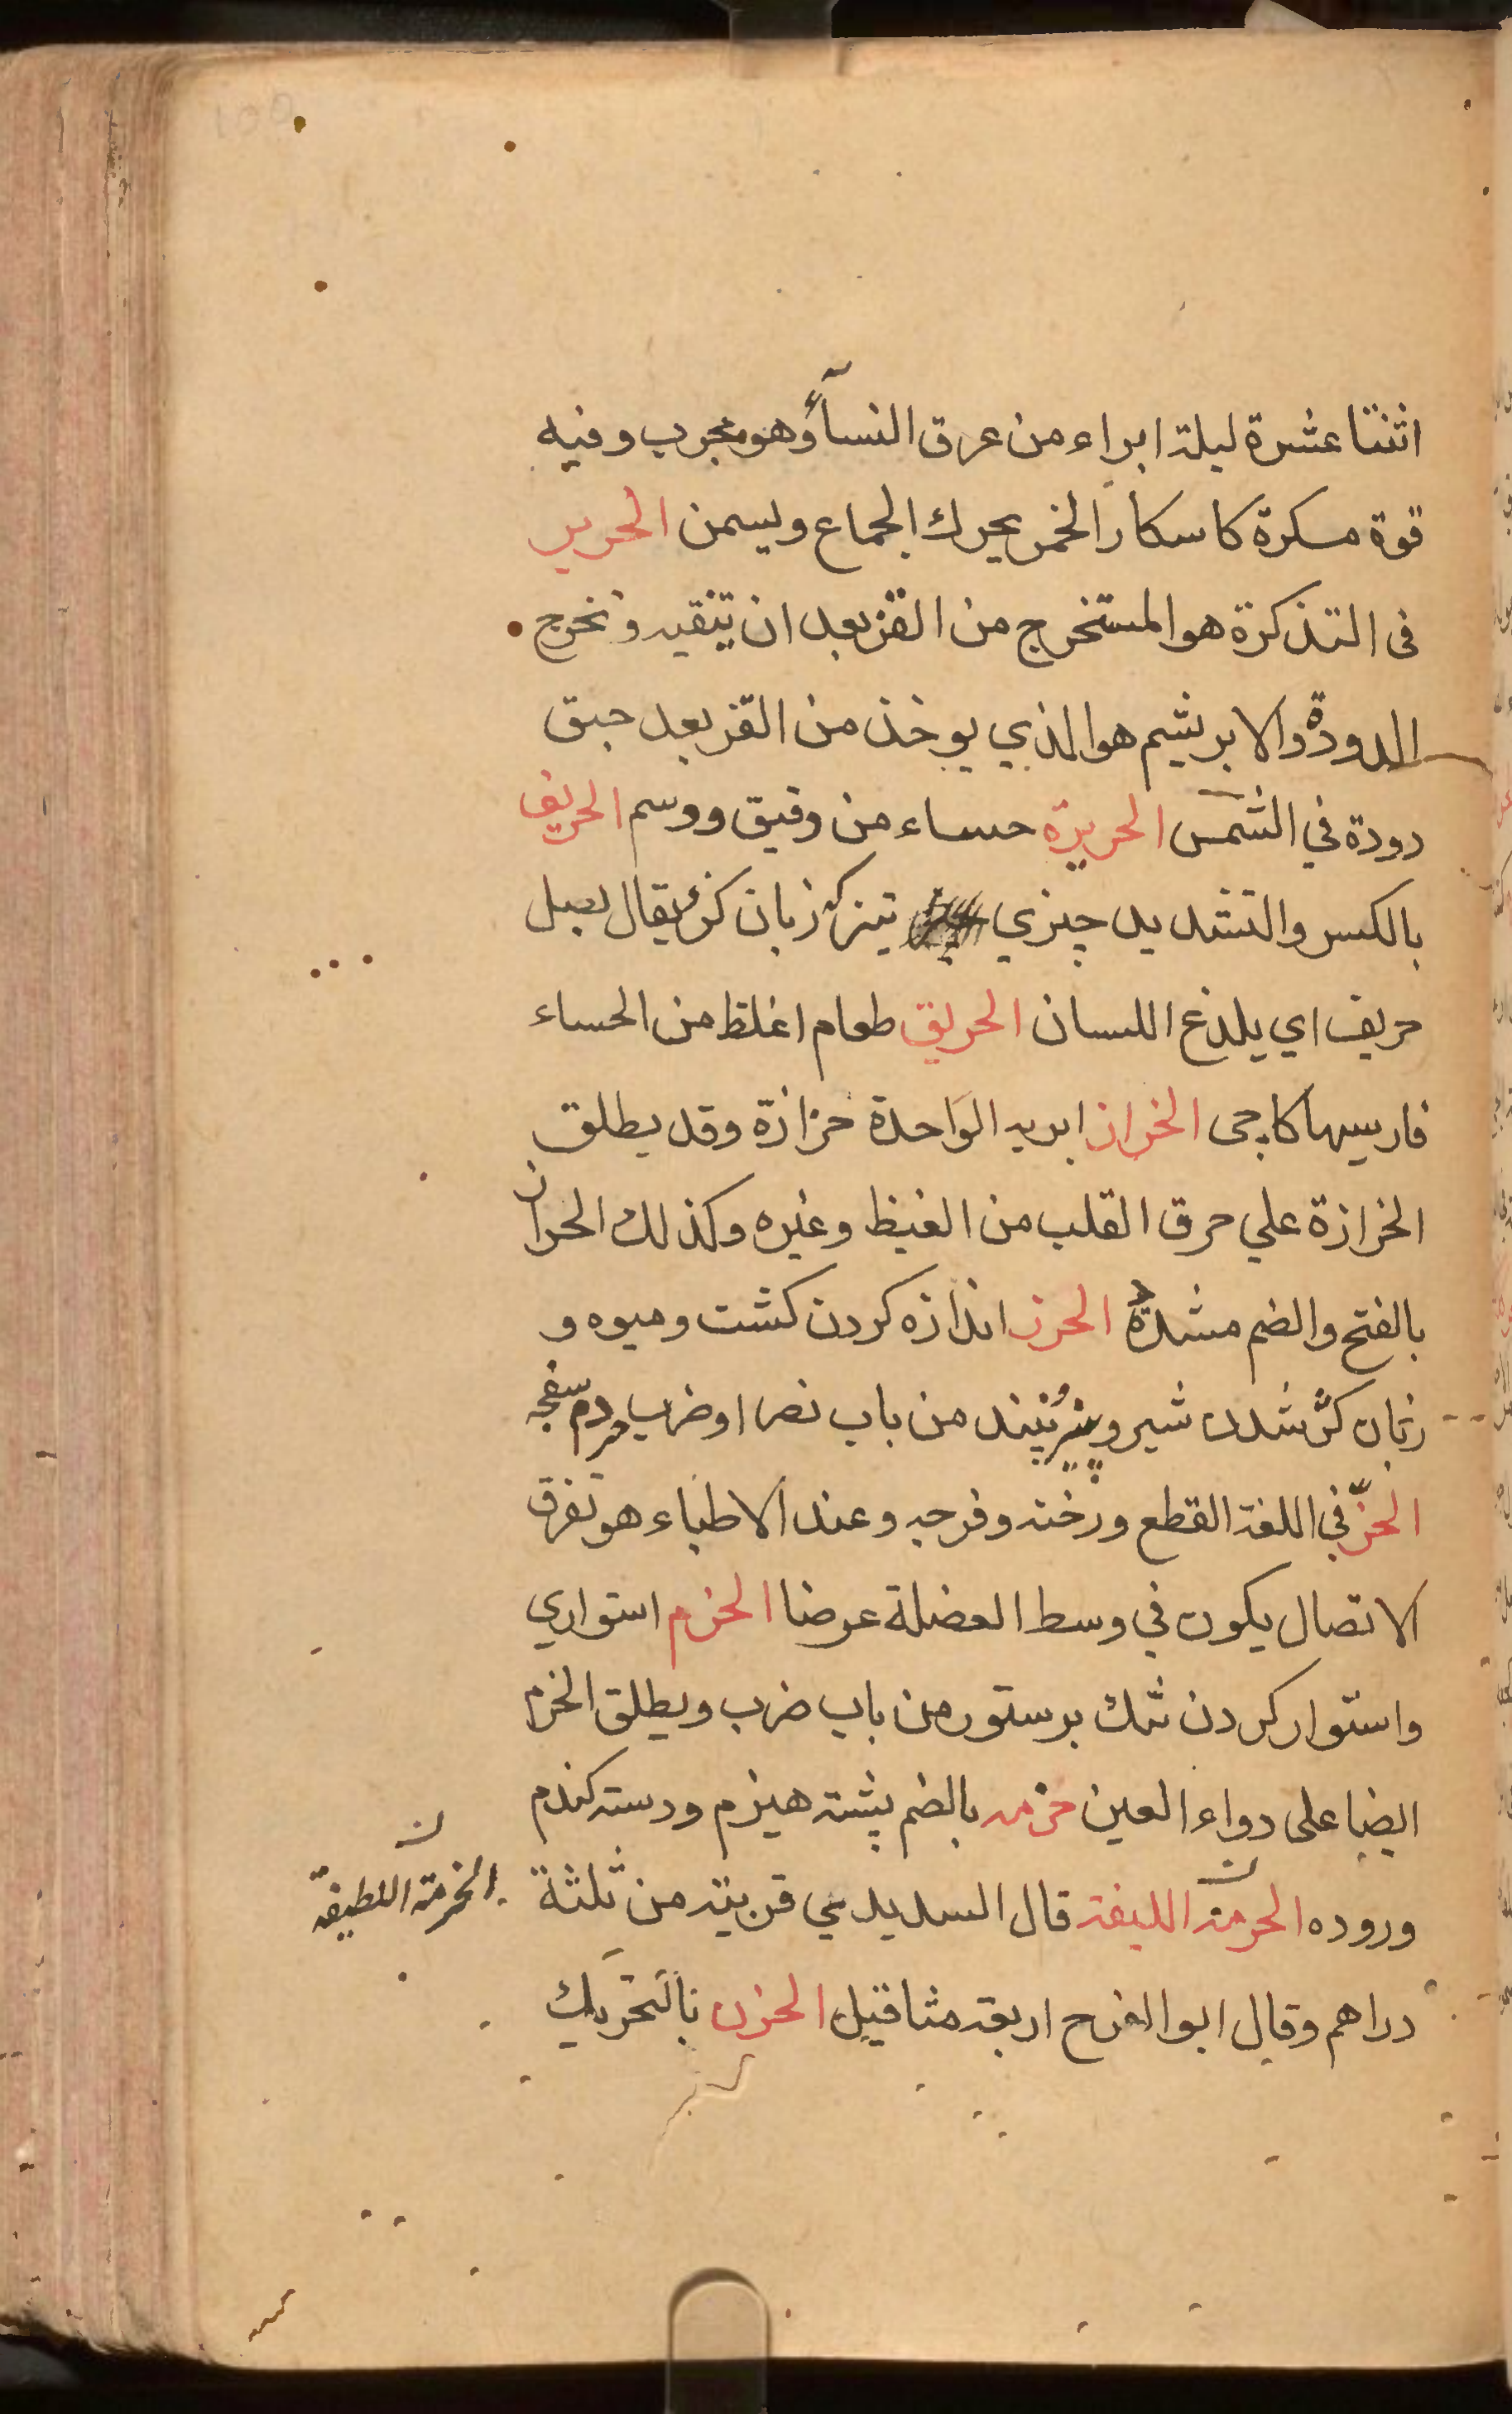 اثنتا عشرة ليلة ابراء من عرق النسآء وهو مجرب وفيه
قوة مسكرة كاسكار الخمر يحرك الجماع ويسمن الحرير
فى التذكرة هو المستخرج من القز بعد ان يتنقيه وتخرج
الدودة والابريشم هو الذي يوخذ من القز بعد خبق
دودة في الشمس الحريرة حساء من وقيق ووسم الحريف
بالكسر والتشديد چيزي تيز كه زبان كزد يقال بصل
حريف اي يلذع اللسان الحريق طعام اغلظ من الحساء
فارسيها كاجى الخراز ابريه الواحدة حزازة وقد يطلق
الخزازة علي حرق القلب من الغيظ وغيره وكذلك الحزاز
بالفتح والضم مشددة الحرز اندازه كردن كشت وميوه و
زبان كز شدن شير و من باب نصر او ضرب
الحزّ في اللغة القطع ورخنه وفرجه وعند الاطباء هو تفرق
الاتصال يكون في وسط العضلة عرضا الحزم استواري
واستوار كردن تنك بر ستور من باب ضرب ويطلق الحزم
ايضا على دواء العين حزمه بالضم پشته هيزم ودسته كندم
وروده الحرمة الليفة قال السديدي قريبة من ثلثة
الخرمة اللطيفة
دراهم وقال ابو الفرح اربعة مثاقيل الحزن بالتحريك